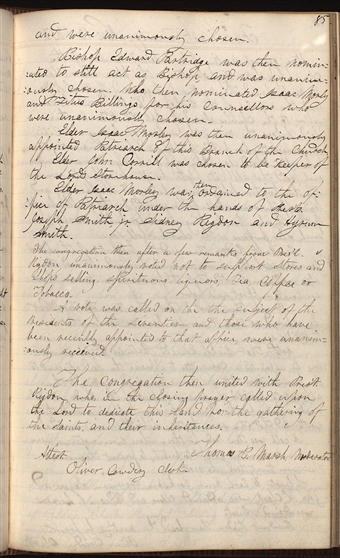 85
and were unanimously chosen.
Bishop Edward Partridge was then nomin-
ated to still act as Bishop and was unanim-
ously chosen. Who then nominated Isaac Morley
and Titus Billings for his Counsellors who
were unanimously chosen.
Elder Isaac Morley was then unanimously
appointed Patriarch of this Branch of the Church.
Elder John Corrill was chosen to be keeper of
the Lord's Storehouse.
Elder Isaac Morley was then ordained to the of-
fice of Patriarch under the hands of
Joseph Smith jr. Sidney Rigdon and Hyrum
Smith.
The congregation then after a few remarks from Prest.
Rigdon unanimously voted not to support Stores and
Shops selling spirituous liquors, Tea Coffee or
Tobacco.
A vote was called on the subject of the
Presidents of the Seventies and those who have
been recently appointed to that office were unanim-
ously received
The Congregation then united with Presdt
Rigdon who in the closing prayer called upon
the Lord to dedicate this land for the gathering of
the Saints, and their inheritances.
Attest Thomas B. Marsh Moderator
Oliver Cowdery Clerk